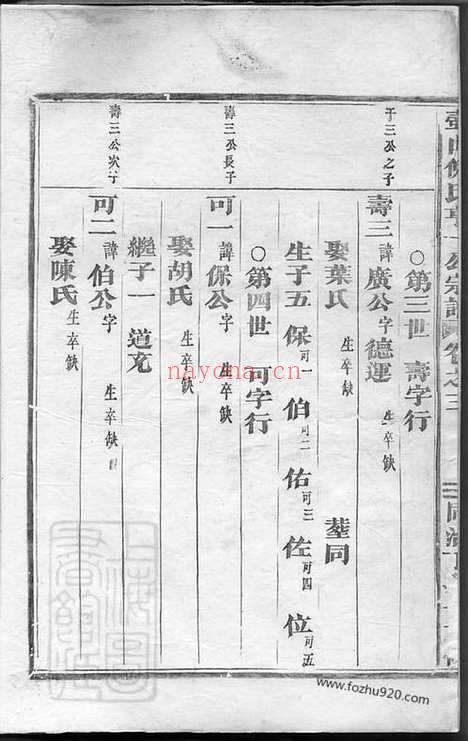 氏亨一公宗譜卷之三
○第三世 壽字行
于三公之子
壽三 諱廣公字德運 生卒缺
娶葉氏 生卒缺 塟同
生子五 保可一 伯可二 佑可三 佐可四 位可五
○第四世 可字行
壽三公長子
可一 諱保公字 生卒缺
娶胡氏 生卒缺
繼子一 道充
壽三公次子
可二 諱伯公字 生卒缺
娶陳氏 生卒缺
nayona.cn
上海圖書館藏
www.fozhu920.com